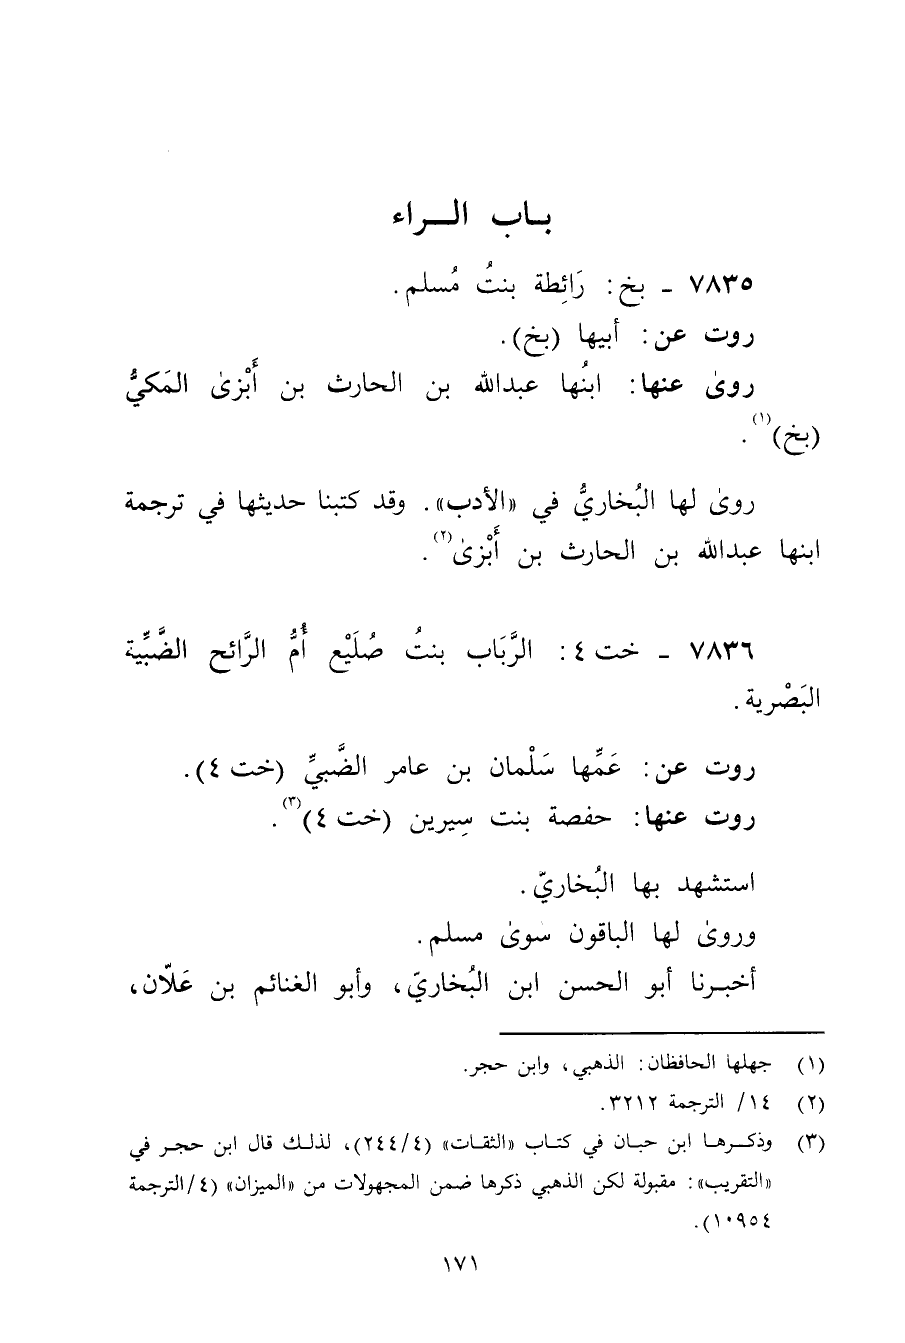 باب الراء
٧٨٣٥ ـ بخ: رَائِطة بنتُ مُسلم.
روت عن: أبيها (بخ).
روىٰ عنها: ابنُها عبدالله بن الحارث بن أَبْزىٰ المَكيُّ
(بخ)(١).
روىٰ لها البُخاريُّ في «الأدب». وقد كتبنا حديثها في ترجمة
ابنها عبدالله بن الحارث بن أَبْزىٰ(٢).
٧٨٣٦ ـ خت ٤: الرَّبَاب بنتُ صُلَيْع أُمُّ الرَّائح الضَّبِّية
البَصْرية.
روت عن: عَمِّها سَلْمان بن عامر الضَّبيِّ (خت ٤).
روت عنها: حفصة بنت سِيرين (خت ٤)(٣).
استشهد بها البُخاريّ.
وروىٰ لها الباقون سوىٰ مسلم.
أخبرنا أبو الحسن ابن البُخاريّ، وأبو الغنائم بن عَلّان،
(١) جهلها الحافظان: الذهبي، وابن حجر.
(٢) ١٤/ الترجمة ٣٢١٢.
(٣) وذكرها ابن حبان في كتاب «الثقات» (٤/٢٤٤)، لذلك قال ابن حجر في
«التقريب»: مقبولة لكن الذهبي ذكرها ضمن المجهولات من «الميزان» (٤/الترجمة
١٠٩٥٤).
١٧١